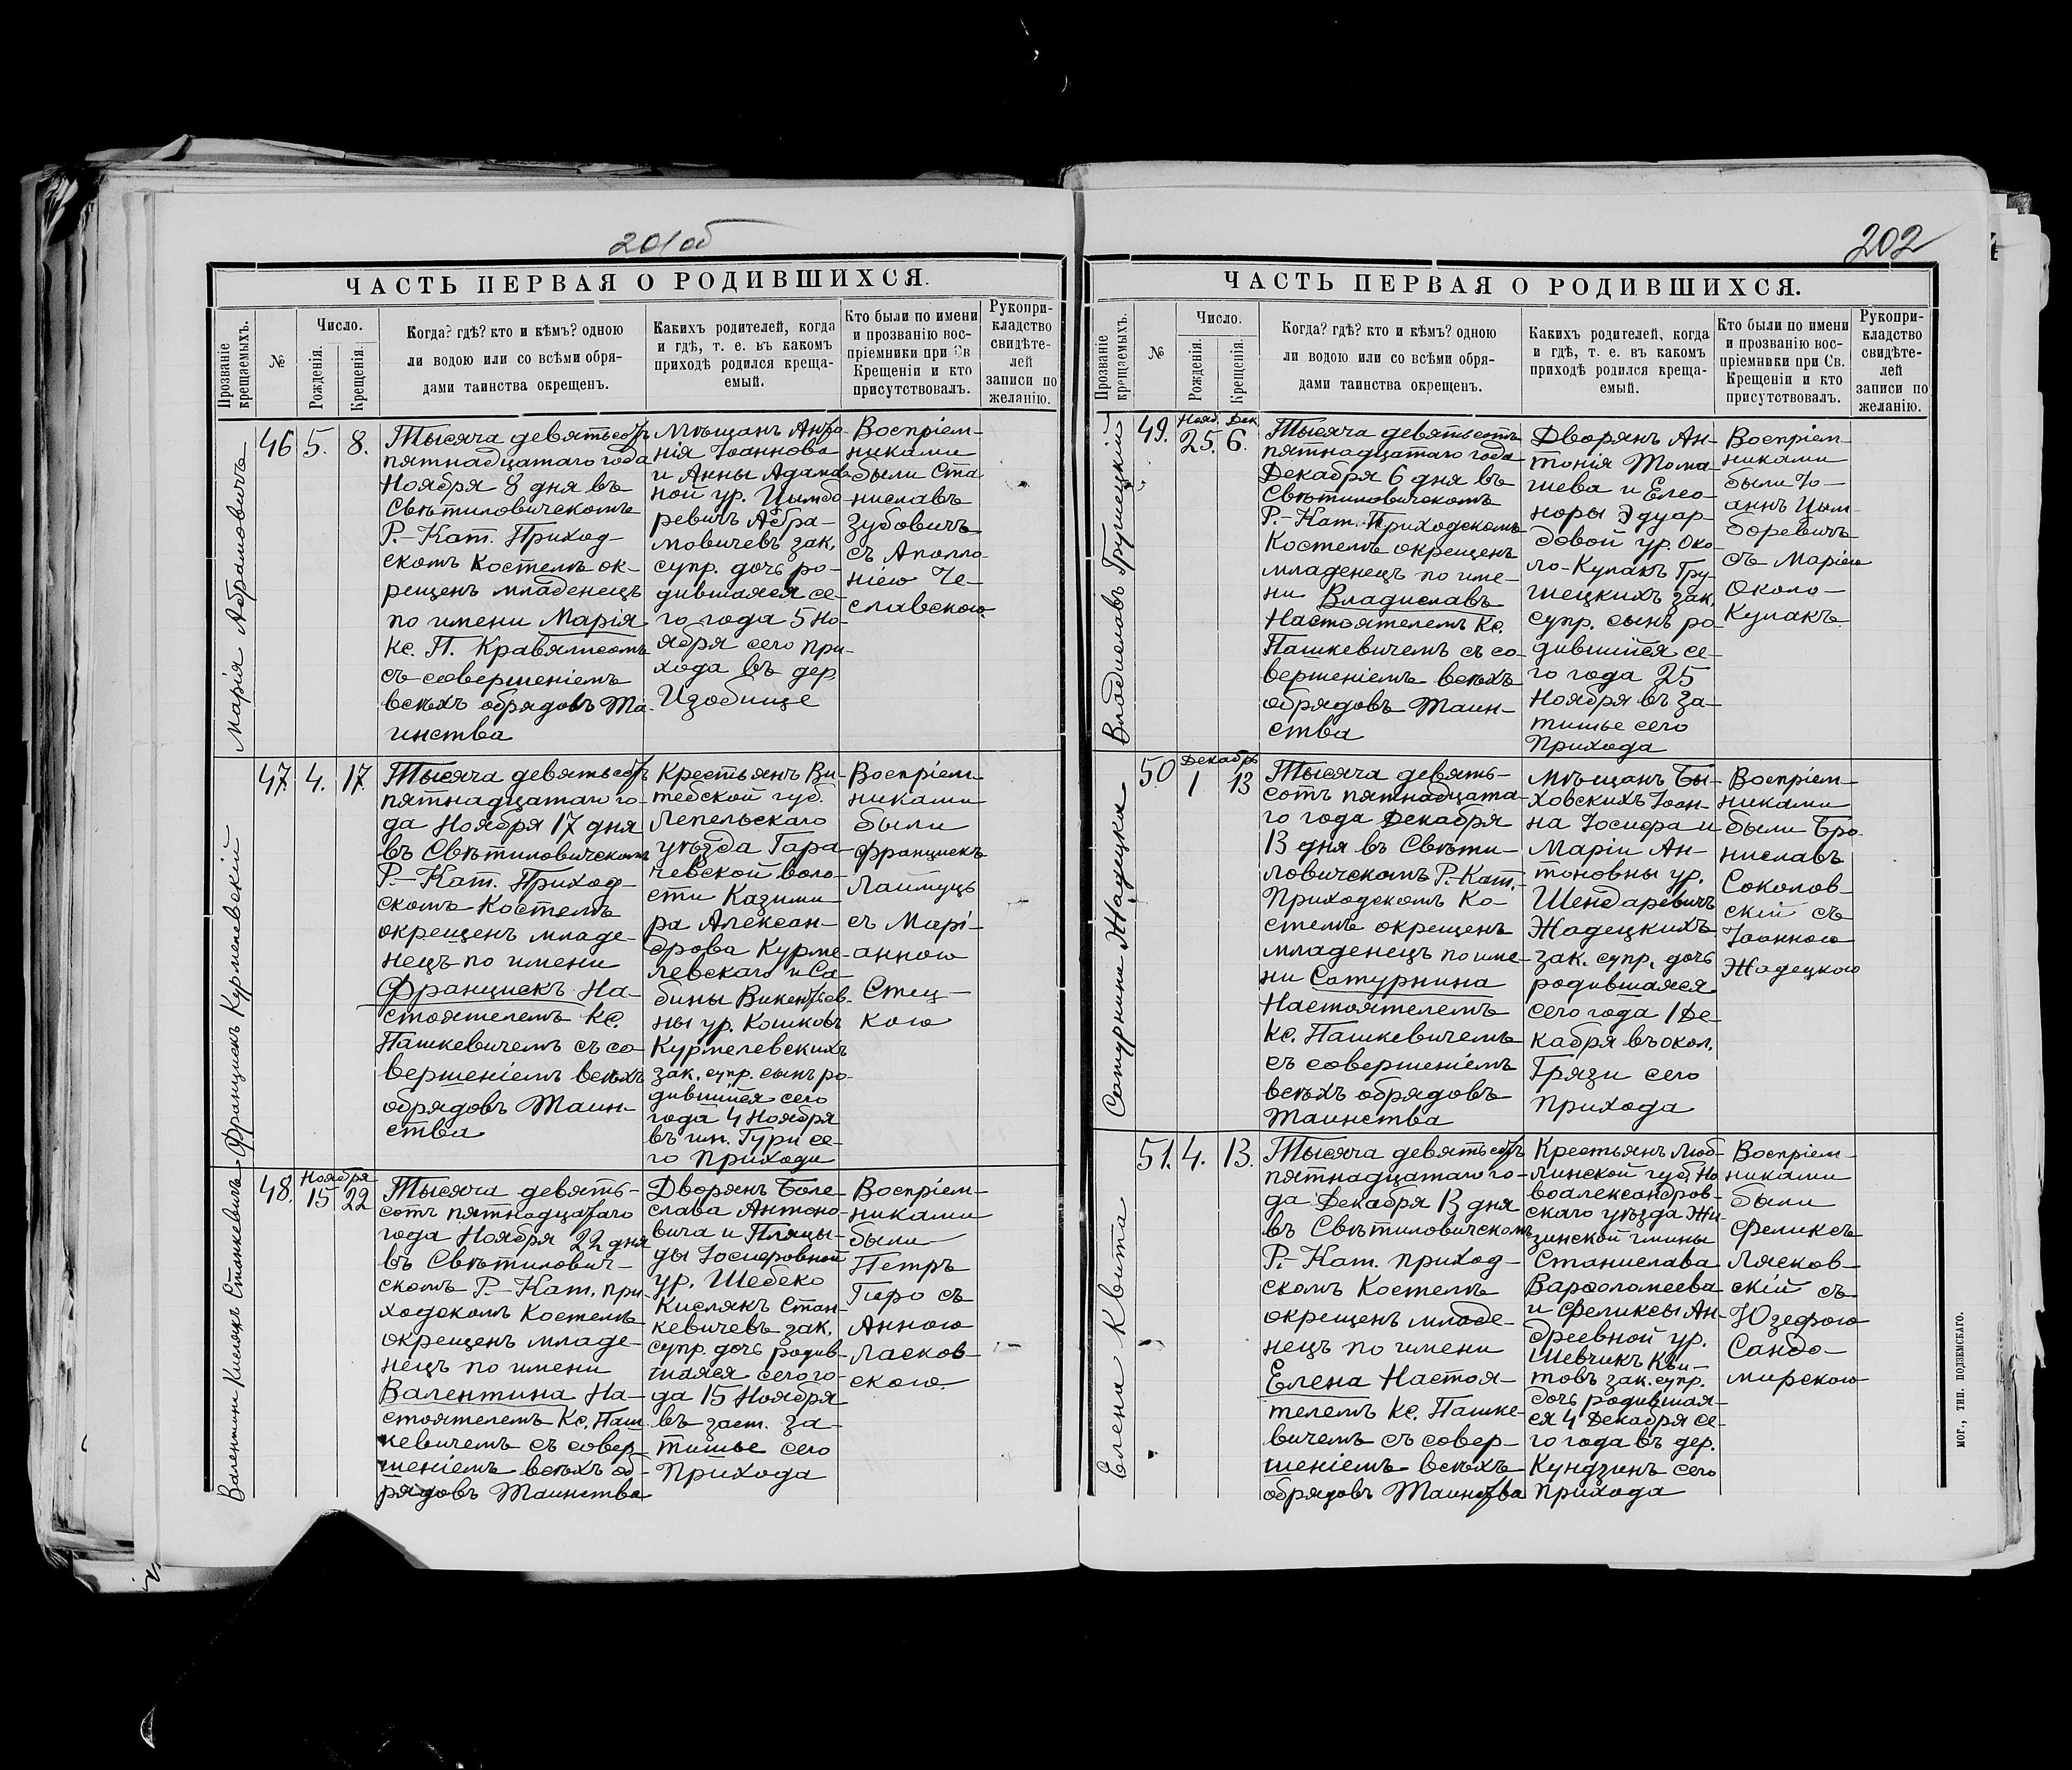 201об
ЧАСТЬ ПЕРВАЯ О РОДИВШИХСЯ.
Прозваніе крещаемыхъ.
№
Число.
Рожденія.
Крещенія.
Когда? гдѣ? кто и кѣмъ? одною
ли водою или со всѣми обря-
дами таинства окрещенъ.
Какихъ родителей, когда
и гдѣ, т. е. въ какомъ
приходѣ родился креща-
емый.
Кто были по имени
и прозванію вос-
пріемники при Св
Крещеніи и кто
присутствовалъ.
Рукопри-
кладство
свидѣте-
лей
записи по
желанію.
Марія Абрамовичъ
46 5. 8.
Тысяча девятьсотъ
пятнадцатаго года
Ноября 8 дня въ
Свѣтиловичскомъ
Р.-Кат. Приход-
скомъ Костелѣ ок-
рещенъ младенецъ
по имени Марія
Кс. П. Кравялисомъ
съ совершеніемъ
всѣхъ обрядовъ Та-
инства
Мѣщанъ Анто-
нія Іоаннова
и Анны Адамов-
ной ур. Цымбо
ревичъ Абра-
мовичевъ зак.
супр. дочь ро-
дившаяся се-
го года 5 Но-
ября сего При-
хода въ дер
Изобище
Воспріем-
никами
были Ста
ниславъ
Зубовичъ
съ Аполло-
ніею Че-
славскою
Францискъ Курмелевскій
47. 4. 17.
Тысяча девятьсотъ
пятнадцатаго го-
да Ноября 17 дня
въ Свѣтиловичскомъ
Р.-Кат. Приход-
скомъ Костелѣ
окрещенъ младе-
нецъ по имени
Францискъ На-
стоятелемъ Кс.
Пашкевичемъ съ со-
вершеніемъ всѣхъ
обрядовъ Таин-
ства
Крестьянъ Ви-
тебской губ.
Лепельскаго
уѣзда Гара
чевской воло-
сти Казими
ра Алексан-
дрова Курме-
левскаго и Са-
бины Викентьев-
ны ур. Кошковъ
Курмелевскихъ
зак. супр. сынъ ро-
дившійся сего
года 4 Ноября
въ им. Гури се-
го Прихода
Воспріем-
никами
были
Францискъ
Лаймуць
съ Марі-
анною
Стец-
кою
Валентина Кислякъ Станкевичъ
48. Ноября
15 22
Тысяча девять-
сотъ пятнадцатаго
года Ноября 22 дня
въ Свѣтилович-
скомъ Р.-Кат. При
ходскомъ Костелѣ
окрещенъ младе-
нецъ по имени
Валентина На-
стоятелемъ Кс. Паш
кевичемъ съ совер-
шеніемъ всѣхъ об-
рядовъ Таинства
Дворянъ Боле-
слава Антоно-
вича и Пляцы-
ды Іосифовной
ур. Шебеко
Кислякъ Стан-
кевичевъ зак.
супр. дочь родив-
шаяся сего го-
да 15 Ноября
въ заст. За-
тишье сего
Прихода
Воспріем-
никами
были
Петръ
Гиро съ
Анною
Ласков-
скою
202
ЧАСТЬ ПЕРВАЯ О РОДИВШИХСЯ.
Прозваніе крещаемыхъ.
№
Число.
Рожденія.
Крещенія.
Когда? гдѣ? кто и кѣмъ? одною
ли водою или со всѣми обря-
дами таинства окрещенъ.
Какихъ родителей, когда
и гдѣ, т. е. въ какомъ
приходѣ родился креща-
емый.
Кто были по имени
и прозванію вос-
пріемники при Св.
Крещеніи и кто
присутствовалъ.
Рукопри-
кладство
свидѣте-
лей
записи по
желанію.
Владиславъ Грушецкій
49. Нояб. Дек.
25. 6.
Тысяча девятьсотъ
пятнадцатаго года
Декабря 6 дня въ
Свѣтиловичскомъ
Р.-Кат. Приходскомъ
Костелѣ окрещенъ
младенецъ по име-
ни Владиславъ
Настоятелемъ Кс.
Пашкевичемъ съ со-
вершеніемъ всѣхъ
обрядовъ Таин-
ства
Дворянъ Ан-
тонія Тома-
шева и Елео-
норы Эдуар-
довой ур. Око-
ло-Кулакъ Гру-
шецкихъ зак.
супр. сынъ ро-
дившійся се-
го года 25
Ноября въ За-
тишье сего
Прихода
Воспріем-
никами
были Іо-
аннъ Цым-
боревичъ
съ Маріею
Около-
Кулакъ
Сатурнина Жадецка
50 Декабрь
1 13
Тысяча девять-
сотъ пятнадцата-
го года Декабря
13 дня въ Свѣти-
ловичскомъ Р.-Кат.
Приходскомъ Ко-
стелѣ окрещенъ
младенецъ по име-
ни Сатурнина
Настоятелемъ
Кс. Пашкевичемъ
съ совершеніемъ
всѣхъ обрядовъ
Таинства
Мѣщанъ Бы-
ховскихъ Іоан-
на Іосифа и
Маріи Ан-
тоновны ур.
Шендаревичъ
Жадецкихъ
зак. супр. дочь
родившаяся
сего года 1 Де-
кабря въ окол.
Грязи сего
Прихода
Воспріем-
никами
были Бро-
ниславъ
Соколов-
скій съ
Іоанною
Жадецкою
Елена Квита
51. 4. 13.
Тысяча девятьсотъ
пятнадцатаго го-
да Декабря 13 дня
въ Свѣтиловичскомъ
Р.-Кат. приход-
скомъ Костелѣ
окрещенъ младе-
нецъ по имени
Елена Настоя-
телемъ Кс. Пашке-
вичемъ съ совер-
шеніемъ всѣхъ
обрядовъ Таинства
Крестьянъ Люб-
линской губ. Но
воалександров-
скаго уѣзда Жи-
зинской гмины
Станислава
Варфоломеева
и Феликсы Ан-
дреевной ур.
Шевчикъ Кви-
товъ зак. супр.
дочь родившая-
ся 4 Декабря се-
го года въ дер.
Кундзинъ сего
прихода
Воспріем-
никами
были
Феликсъ
Лясков-
скій съ
Юзефою
Сандо-
мирскою
МОГ., ТИП. ПОДЗЕМСКАГО.